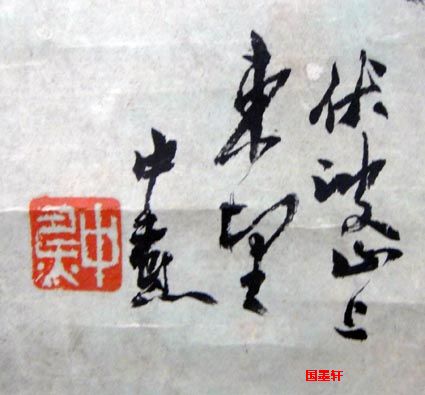 伏波山上
東望
中
中
国墨轩